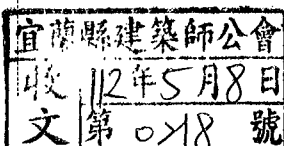 宜蘭縣建築師公會
收文
112年5月8日
第0218號